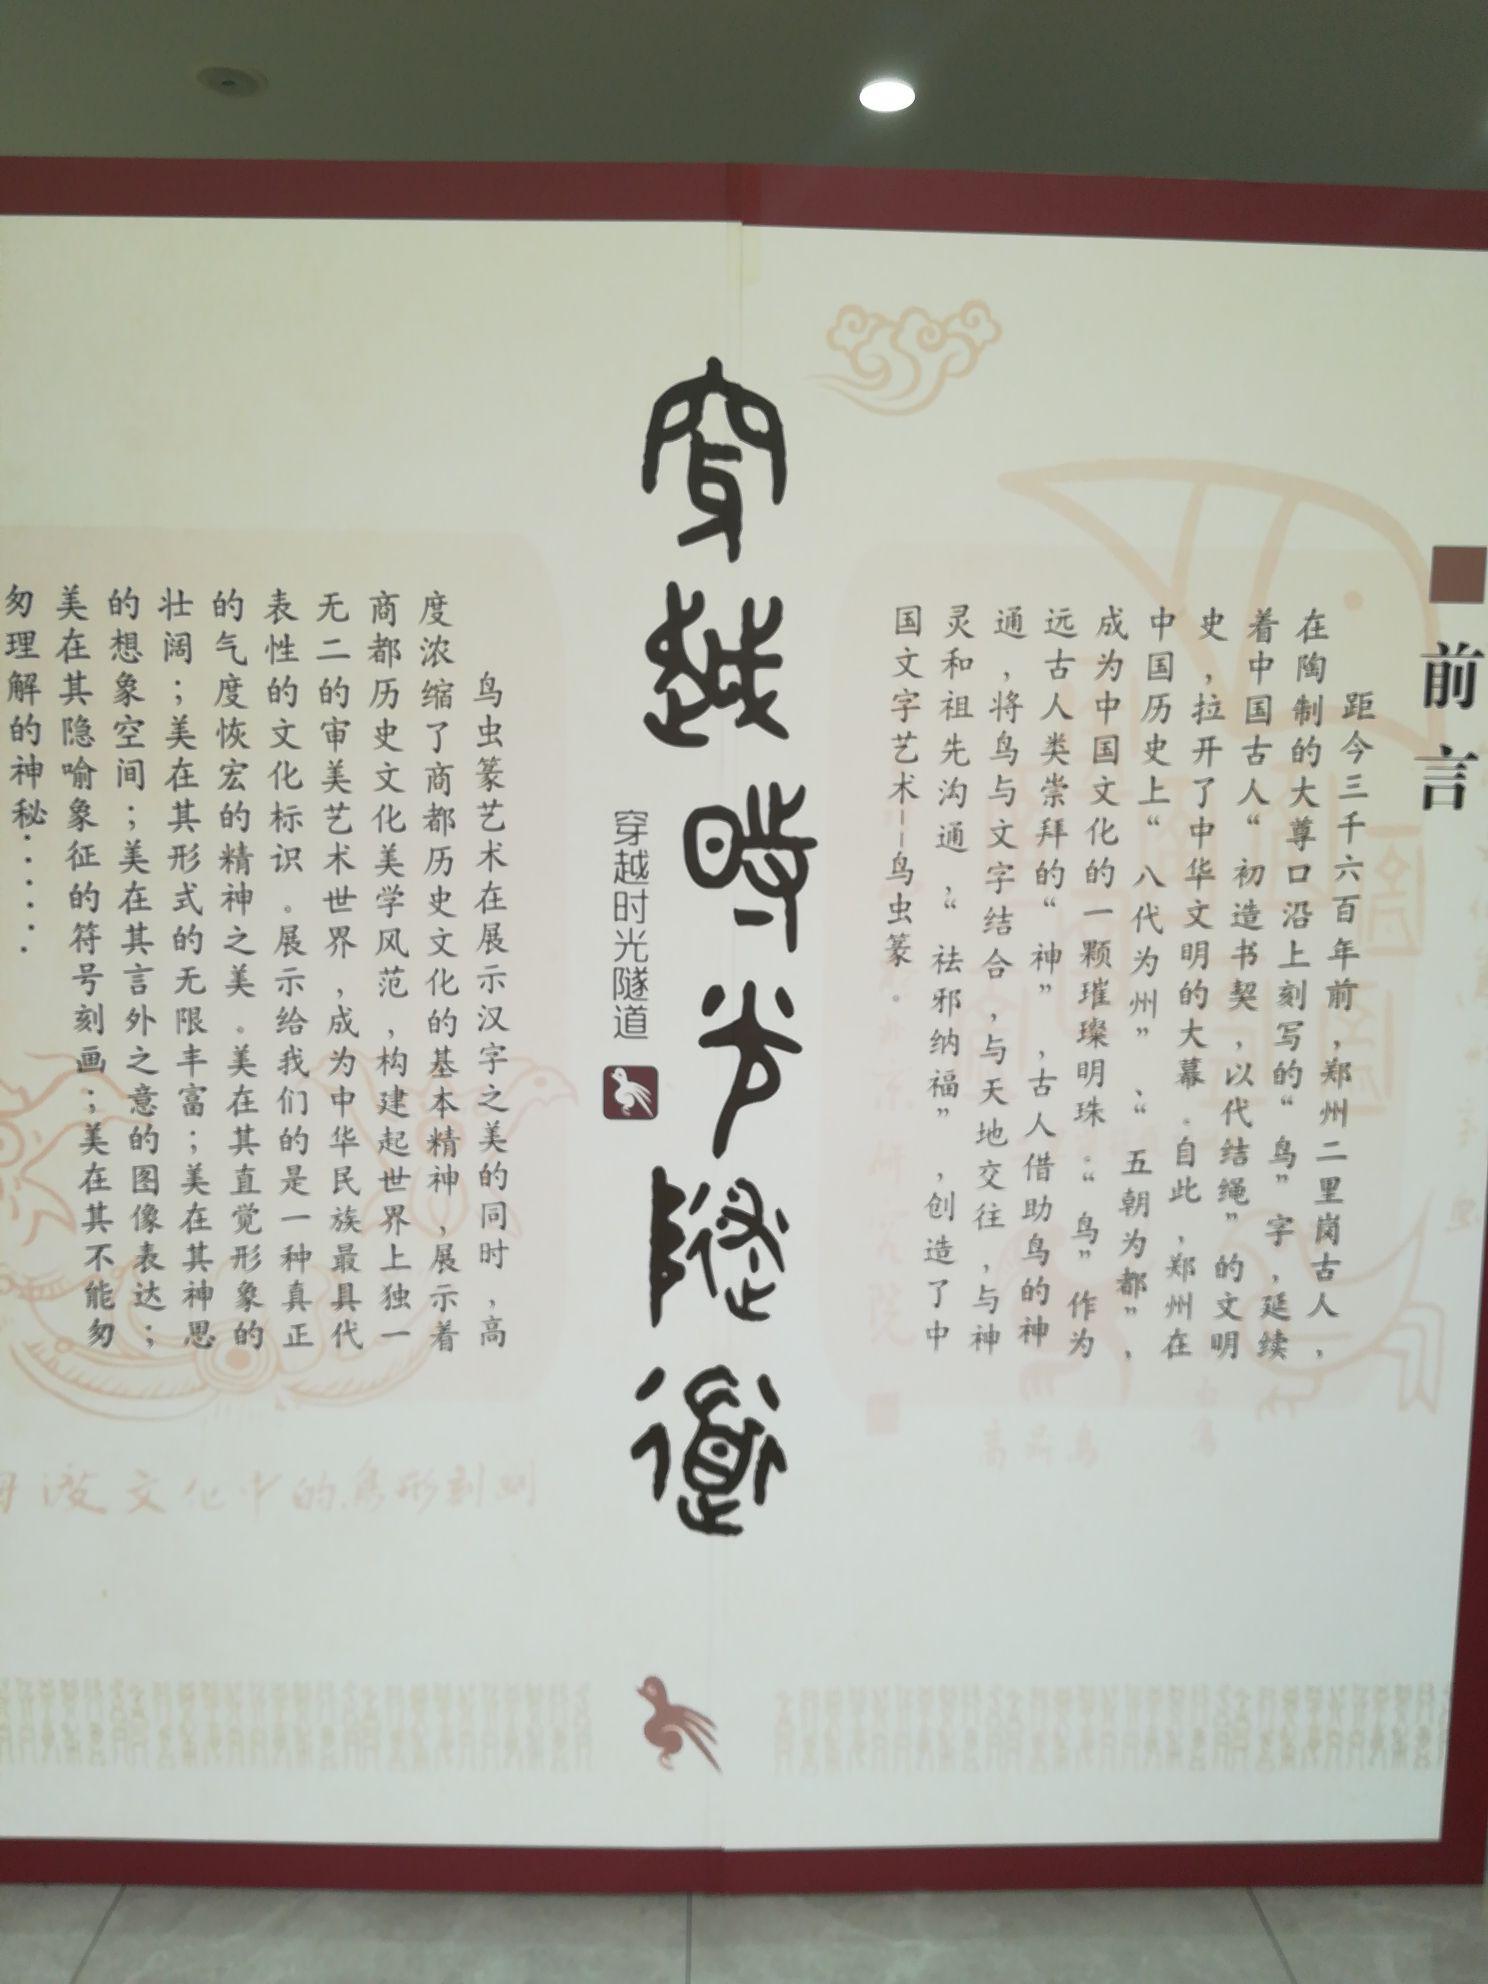 前言
距今三千六百年前，郑州二里岗古人，
在陶制的大尊口沿上刻写的“鸟”字，延续
着中国古人“初造书契，以代结绳”的文明
史，拉开了中华文明的大幕。自此，郑州在
中国历史上“八代为州”、“五朝为都”，
成为中国文化的一颗璀璨明珠。“鸟”作为
远古人类崇拜的“神”，古人借助鸟的神
通，将鸟与文字结合，与天地交往，与神
灵和祖先沟通，“祛邪纳福”，创造了中
国文字艺术--鸟虫篆。
穿越时光隧道
穿越时光隧道
鸟虫篆艺术在展示汉字之美的同时，高
度浓缩了商都历史文化的基本精神，展示着
商都历史文化美学风范，构建起世界上独一
无二的审美艺术世界，成为中华民族最具代
表性的文化标识。展示给我们的是一种真正
的气度恢宏的精神之美。美在其直觉形象的
壮阔；美在其形式的无限丰富；美在其神思
的想象空间；美在其言外之意的图像表达；
美在其隐喻象征的符号刻画；美在其不能匆
匆理解的神秘······
文化中的鸟形刻